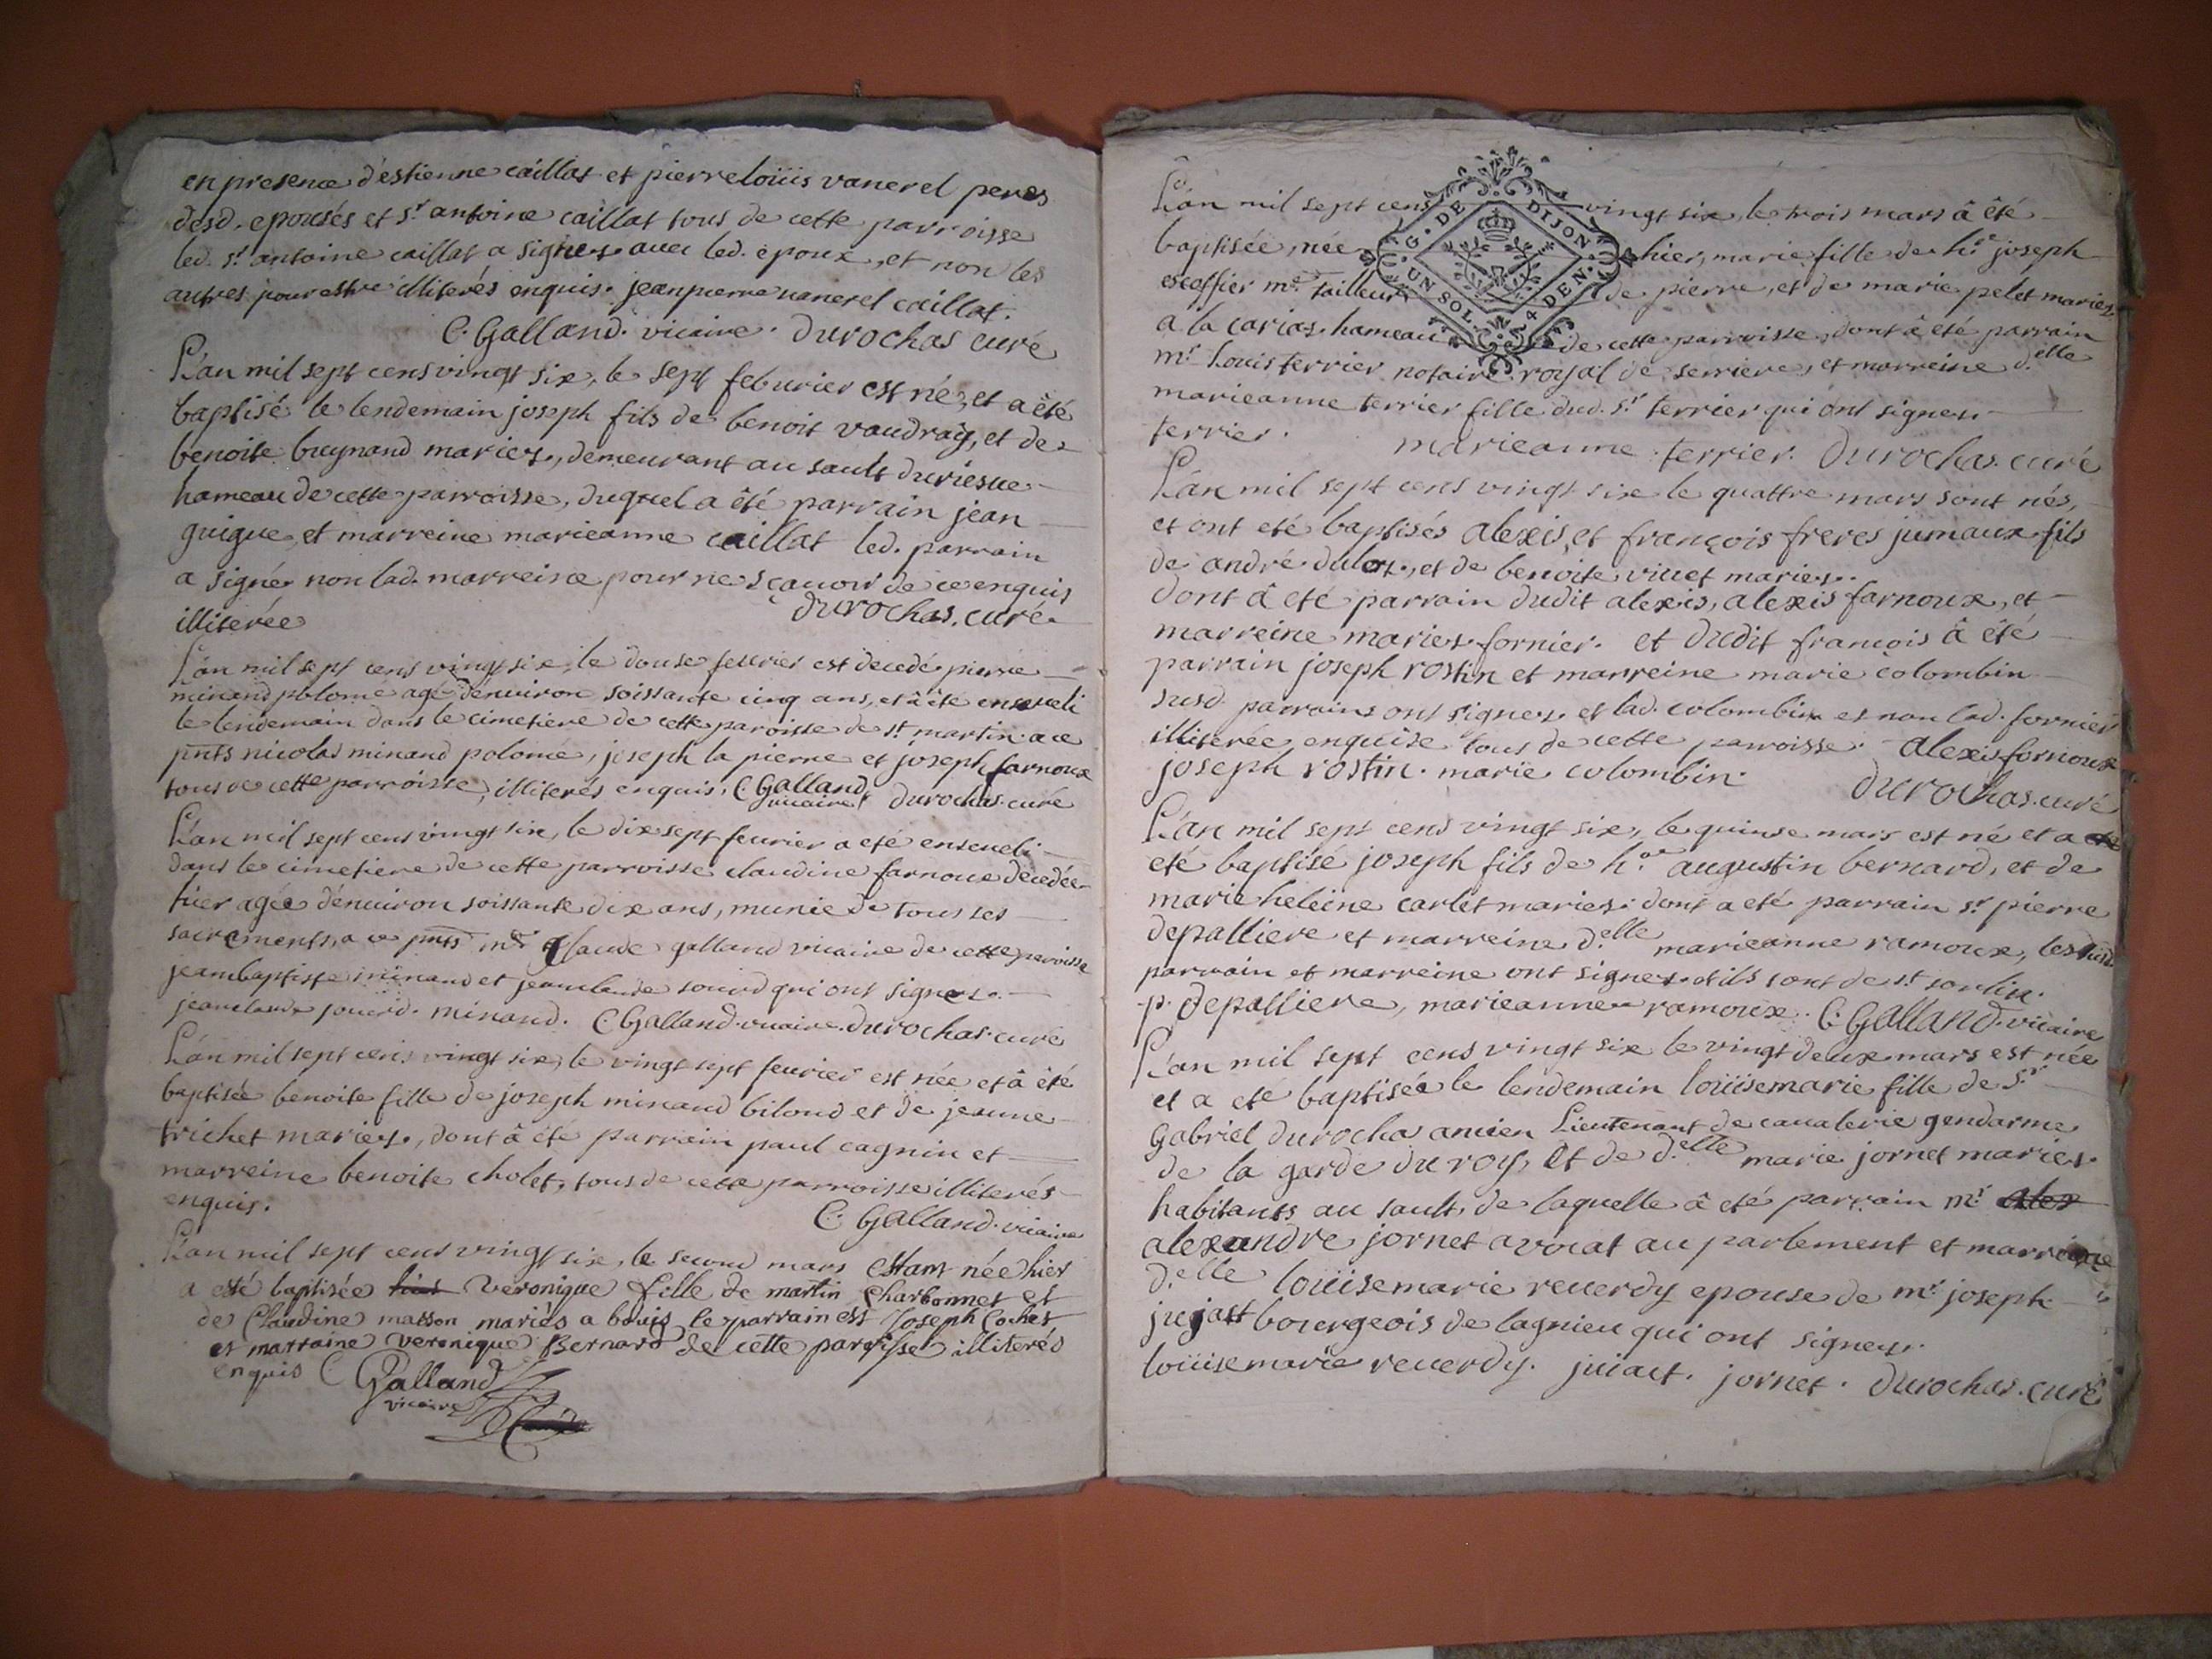 en presence d'estienne caillat et pierre loüis vanerel peres
desd. epousés et sr. antoine caillat tous de cette parroisse
led. sr. antoine caillat a signé avec led. epoux, et non les
autres pour estre illiterés enquis. jeanpierre vanerel caillat.
C. Galland. vicaire. Durochas curé
L'an mil sept cens vingt six, le sept feburier est né, et a été
baptisé le lendemain joseph fils de benoit vaudray, et de
benoite mariez, demeurant au sault
hameau de cette parroisse, duquel a été parrain jean
guigue, et marreine marieanne caillat led. parrain
a signé non lad. marreine pour ne sçavoir de ce enquis
illiterée Durochas. curé.
L'an mil sept cens vingt six, le douse feurier est decedé pierre
minand polome agé d'enuiron soissante cinq ans, et â été enseueli
le lendemain dans le cimetiere de cette paroisse de st. martin. a ce
pnts nicolas minand polome, joseph la pierre et joseph farnoux
tous de cette parroisse, illiterés enquis. C. Galland vicaire Durochas. curé
L'an mil sept cens vingt six, le dix sept feurier a eté enseueli
dans le cimetiere de cette parroisse claudine farnoux decedée
hier agée d'enuiron soissante dix ans, munie de tous ses
sacrements, a ce pnts mr. Claude galland vicaire de cette paroisse
jeanbaptiste minand et jeanclaude jouurd qui ont signez.
jeanclaude minand. C. Galland. vicaire. Durochas. curé
L'an mil sept cens vingt six, le vingt sept feurier est née et â été
baptisée benoite fille de joseph minand biloud et de jeanne
trichet mariez, dont â été parrain paul cagnin et
marreine benoite cholet, tous de cette parroisse illiterés
enquis. C. Galland. vicaire
L'an mil sept cens vingt six, le second mars estant née hier
a esté baptisée veronique fille de martin Charbonnet et
de Claudine masson mariés a bouis le parrain est Joseph Cochet
et marraine veronique Bernard de cette paroisse illiterés
enquis C Galland
vicaire
L'an mil sept cens vingt six, le trois mars â été
baptisée, née hier, marie fille de h.e joseph
escoffier me. tailleur de pierre, et de marie pelet mariez
a la carias. hameau de cette parroisse, dont â eté parrain
mr. Louis terrier notaire royal de serriere, et marreine d.elle
marieanne terrier fille dud. sr. terrier qui ont signez.
terrier. marieanne terrier. Durochas. curé
G. DE DIJON
UN SOL. 4 DEN.
L'an mil sept cens vingt six le quattre mars sont nés,
et ont eté baptisés alexis, et françois freres jumaux fils
de andré, et de benoite viuet mariez.
dont â eté parrain dudit alexis, alexis farnoux, et
marreine marie fornier. et dudit francois â été
parrain joseph rostin et marreine marie colombin
susd. parrains ont signez et lad. colombin et non lad. fornier
illiterée enquise tous de cette parroisse. Alexis fornoux
joseph rostin. marie colombin. Durochas. curé
L'an mil sept cens vingt six, le quinse mars est né et a
eté baptisé joseph fils de h.e augustin bernard, et de
marie heleine carlet mariez. dont a eté parrain sr. pierre
depalliere et marreine d.elle marieanne ramoux, les susd.
parrain et marreine ont signez. et ils sont de st. sorlin.
p. depalliere, marieanne ramoux. C. Galland. vicaire
L'an mil sept cens vingt six le vingt deux mars est née
et a eté baptisée le lendemain loüisemarie fille de sr.
Gabriel durocha ancien Lieutenant de caualerie gendarme
de la garde du roy, et de d.elle marie jornet mariez
habitants au sault, de laquelle â eté parrain mr. alex
alexandre jornet avocat au parlement et marreine
d.elle loüisemarie reuerdy epouse de mr. joseph
jujatt bourgeois de lagnieu qui ont signez.
loüisemarie reuerdy. juiact. jornet. Durochas. curé